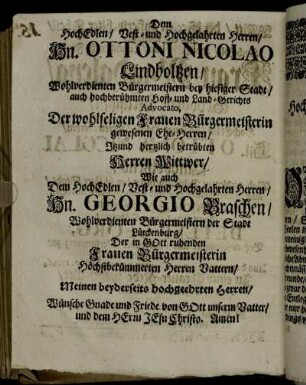 Dem
HochEdlen / Vest- und Hochgelahrten Herren /
Hn. OTTONI NICOLAO
Lindholtzen /
Wohlverdienten Bürgermeistern bey hiesiger Stadt /
auch hochberühmten Hoff- und Land-Gerichts
Advocato,
Der wohlseligen Frauen Bürgermeisterin
gewesenen Ehe-Herren /
Itzund hertzlich betrübten
Herren Wittwer /
Wie auch
Dem HochEdlen / Vest- und Hochgelahrten Herren /
Hn. GEORGIO Braschen /
Wohlverdienten Bürgermeistern der Stadt
Lüneburg /
Der in GOtt ruhenden
Frauen Bürgermeisterin
Höchstbekümmerten Herren Vattern /
Meinen beyderseits hochgeehrten Herren /
Wünsche Gnade und Friede von GOtt unserm Vatter /
und dem HErrn JEsu Christo. Amen!